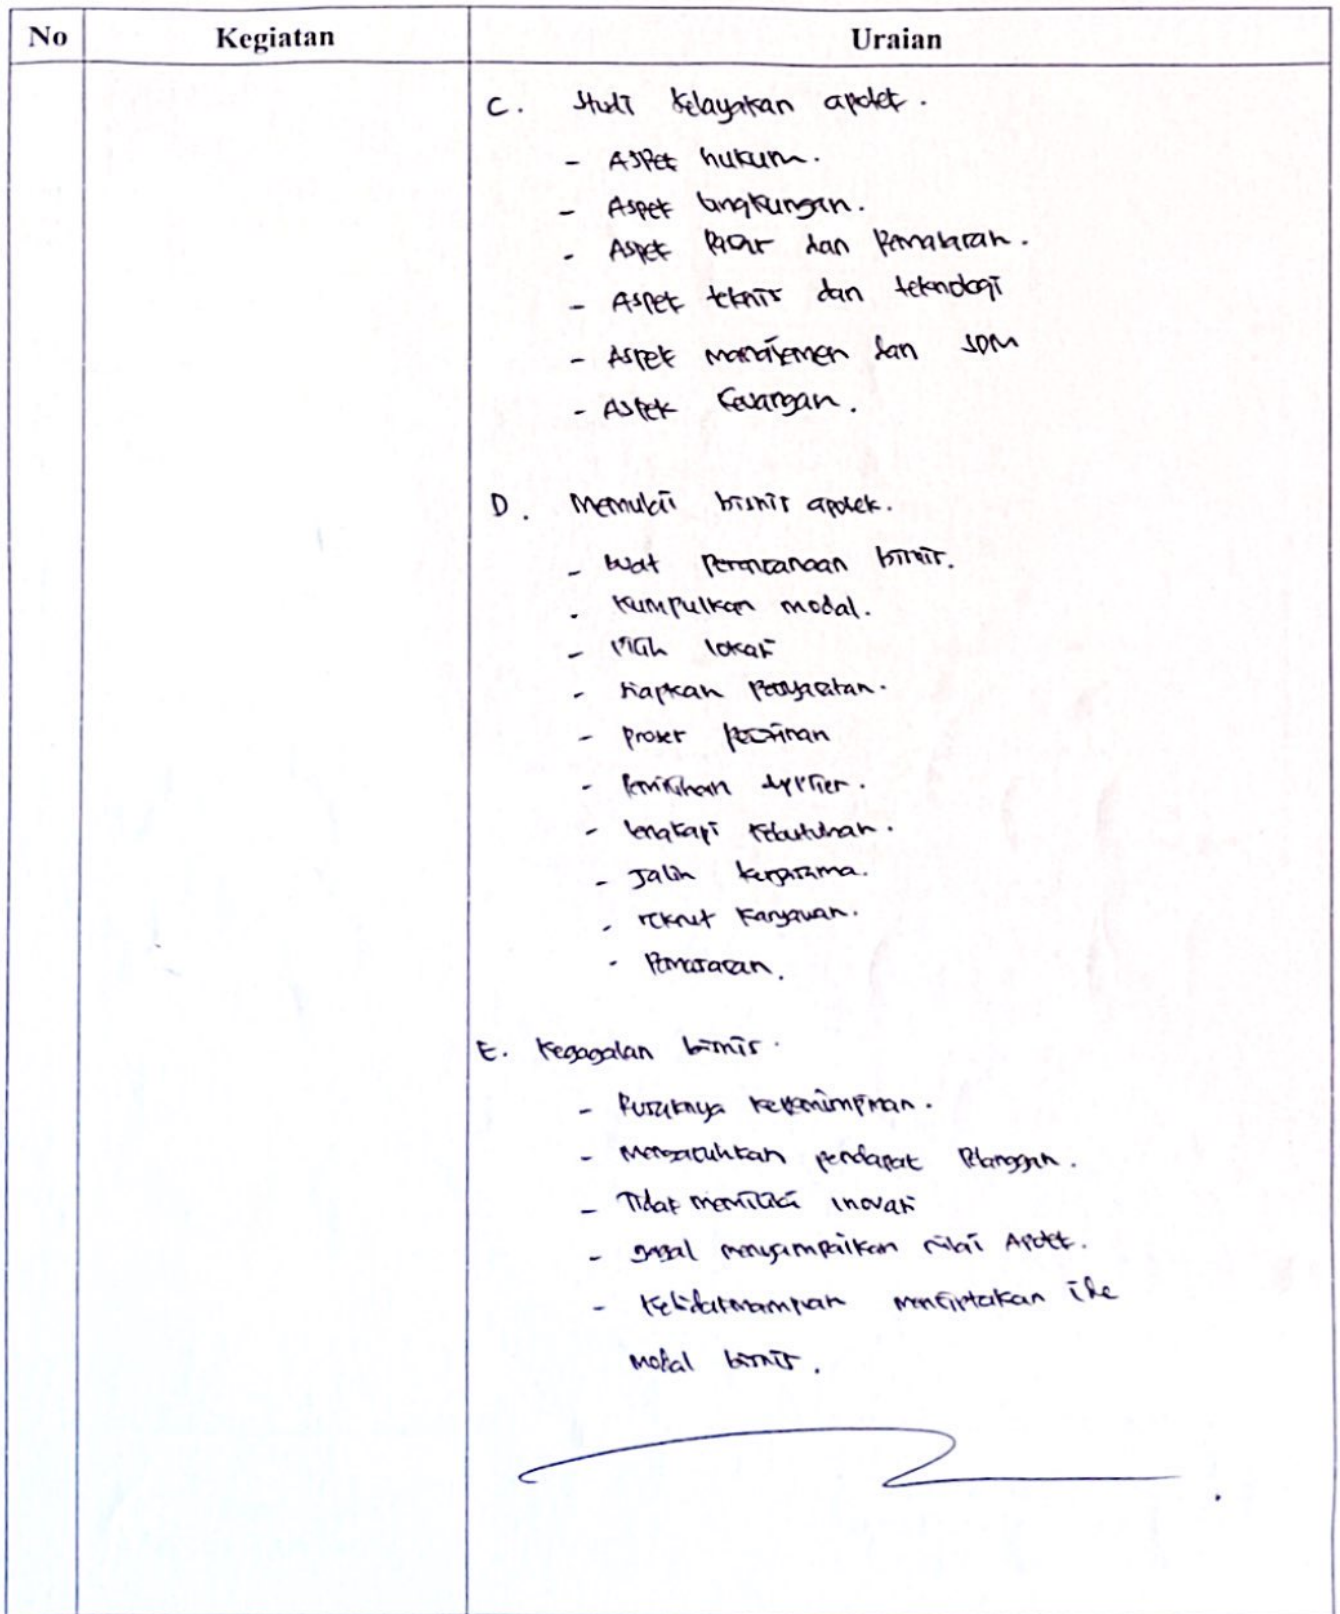 No Kegiatan Uraian
C. Studi kelayakan apotek.
- Aspek hukum.
- Aspek lingkungan.
- Aspek Pasar dan Pemasaran.
- Aspek teknis dan teknologi
- Aspek manajemen dan SDM
- Aspek Keuangan.
D. Memulai bisnis apotek.
- buat Perencanaan bisnis.
- Kumpulkan modal.
- Pilih lokasi
- siapkan Persyaratan.
- proses perizinan
- Pemilihan supplier.
- lengkapi kebutuhan.
- Jalin kerjasama.
- rekrut Karyawan.
- Pemasaran.
E. Kegagalan bisnis.
- Rusaknya kepemimpinan.
- Mengacuhkan pendapat Pelanggan.
- Tidak memiliki inovasi
- gagal menyampaikan nilai Apotek.
- Ketidakmampuan menciptakan ide
modal bisnis.